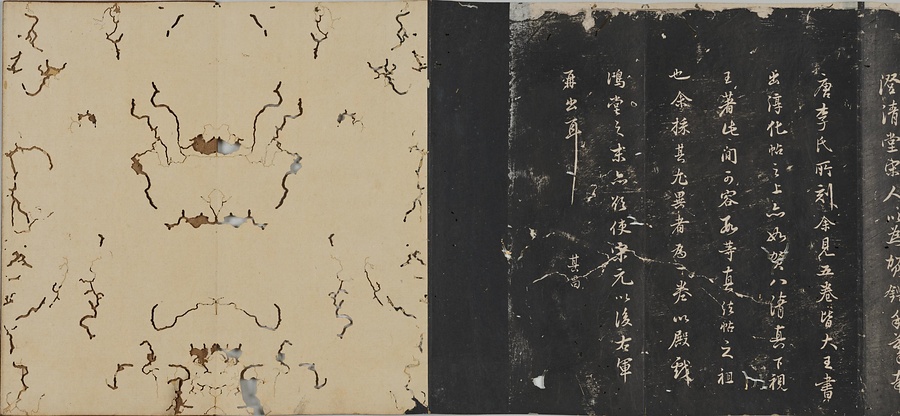 澄清堂宋人以爲
唐李氏所刻余見五卷皆大王書
出淳化帖之上亦如賀八清真下視
王著此間可容數等真法帖之祖
也余採其尤異者爲一卷以殿戲
鴻堂之末亦欲使宋元以後右軍
再出耳
其昌